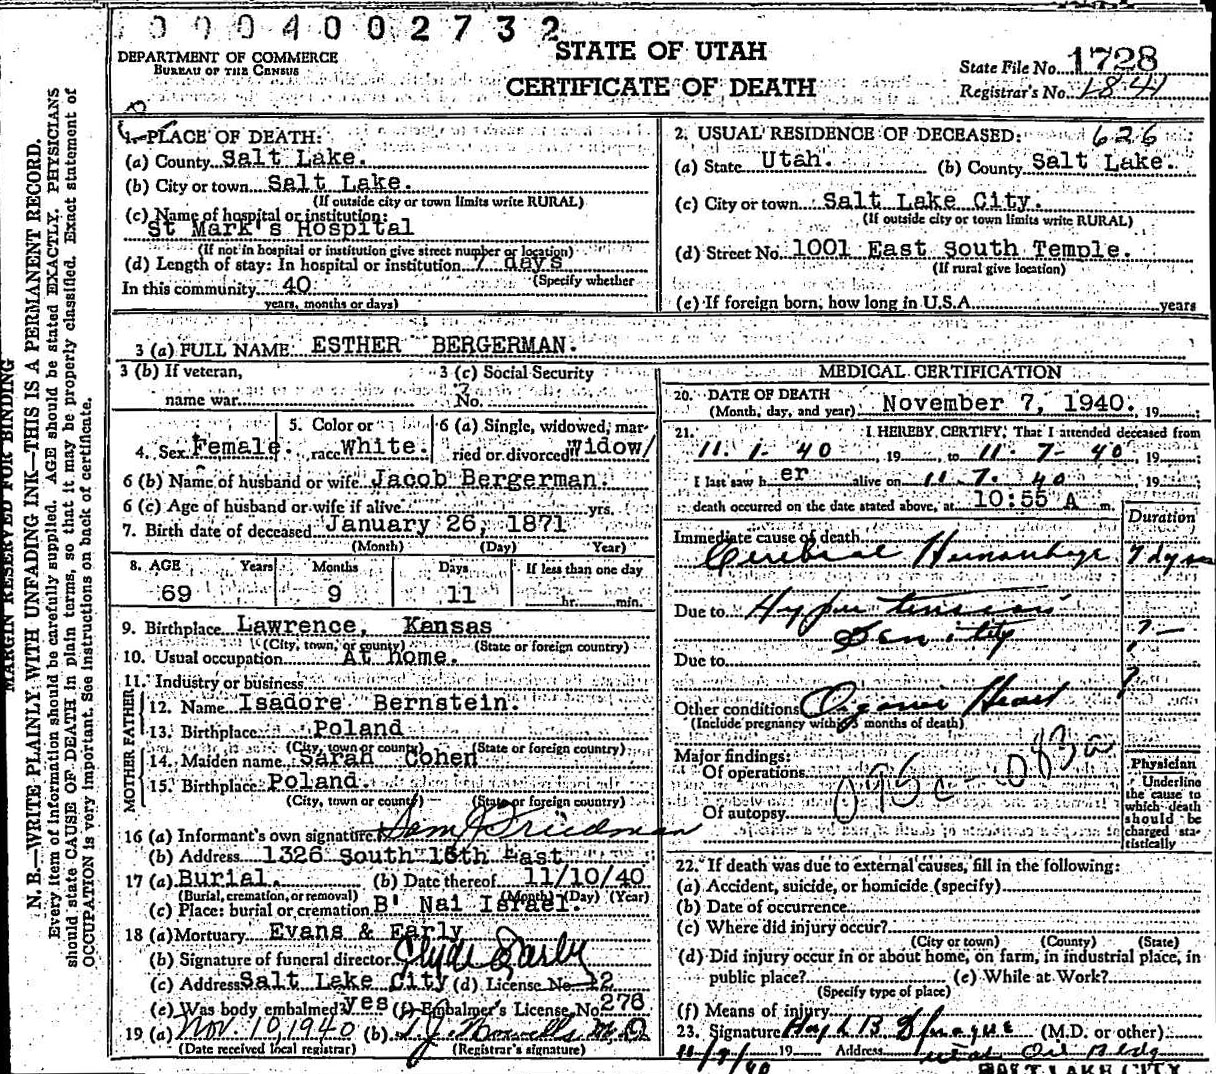 0 0 0 4 0 0 2 7 3 2
DEPARTMENT OF COMMERCE
BUREAU OF THE CENSUS
STATE OF UTAH
CERTIFICATE OF DEATH
State File No. 1728
Registrar's No. 1841
1. PLACE OF DEATH:
(a) County Salt Lake.
(b) City or town Salt Lake.
(If outside city or town limits write RURAL)
(c) Name of hospital or institution:
St Mark's Hospital
(If not in hospital or institution give street number or location)
(d) Length of stay: In hospital or institution 7 days
(Specify whether
In this community 40
years, months or days)
2. USUAL RESIDENCE OF DECEASED: 626
(a) State Utah. (b) County Salt Lake.
(c) City or town Salt Lake City.
(If outside city or town limits write RURAL)
(d) Street No. 1001 East South Temple.
(If rural give location)
(e) If foreign born, how long in U.S.A. years
3 (a) FULL NAME ESTHER BERGERMAN.
3 (b) If veteran,
name war
3 (c) Social Security
No.
4. Sex Female.
5. Color or
race White.
6 (a) Single, widowed, mar-
ried or divorced Widow/
6 (b) Name of husband or wife Jacob Bergerman.
6 (c) Age of husband or wife if alive yrs.
7. Birth date of deceased January 26, 1871
(Month) (Day) Year)
8. AGE Years Months Days If less than one day
69 9 11 hr. min.
9. Birthplace Lawrence, Kansas
(City, town, or county) (State or foreign country)
10. Usual occupation At home.
11. Industry or business
FATHER
12. Name Isadore Bernstein.
13. Birthplace Poland
(City, town or county) (State or foreign country)
MOTHER
14. Maiden name Sarah Cohen
15. Birthplace Poland.
(City, town or county) (State or foreign country)
16 (a) Informant's own signature Sam J Friedman
(b) Address 1326 South 15th East
17 (a) Burial. (b) Date thereof 11/10/40
(Burial, cremation, or removal) (Month) (Day) (Year)
(c) Place: burial or cremation B' Nai Israel.
18 (a) Mortuary Evans & Early
(b) Signature of funeral director Clyde Early
(c) Address Salt Lake City (d) License No. 12
(e) Was body embalmed? yes (f) Embalmer's License No. 276
19 (a) Nov. 10, 1940 (b) M.D.
(Date received local registrar) (Registrar's signature)
MEDICAL CERTIFICATION
20. DATE OF DEATH
(Month, day, and year) November 7, 1940. 19 ;
21. I HEREBY CERTIFY, That I attended deceased from
11. 1- 40, 19 to 11- 7- 40, 19 ;
I last saw h er alive on 11. 7. 40 19 ;
death occurred on the date stated above, at 10:55 A m.
Duration
Immediate cause of death
Cerebral Hemorrhage 7 dys
Due to Hypertension
Senility ? -
Due to
Other conditions Organic Heart ?
(Include pregnancy within 3 months of death)
Major findings:
Of operations
Of autopsy
Physician
Underline
the cause to
which death
should be
charged sta-
tistically
22. If death was due to external causes, fill in the following:
(a) Accident, suicide, or homicide (specify)
(b) Date of occurrence
(c) Where did injury occur?
(City or town) (County) (State)
(d) Did injury occur in or about home, on farm, in industrial place, in
public place? (e) While at Work?
(Specify type of place)
(f) Means of injury
23. Signature Hugh B Sprague (M.D. or other)
11/9/40 19 Address Utah Oil Bldg
SALT LAKE CITY
MARGIN RESERVED FOR BINDING
N. B.—WRITE PLAINLY WITH UNFADING INK—THIS IS A PERMANENT RECORD.
Every item of information should be carefully supplied. AGE should be stated EXACTLY. PHYSICIANS
should state CAUSE OF DEATH in plain terms, so that it may be properly classified. Exact statement of
OCCUPATION is very important. See instructions on back of certificate.